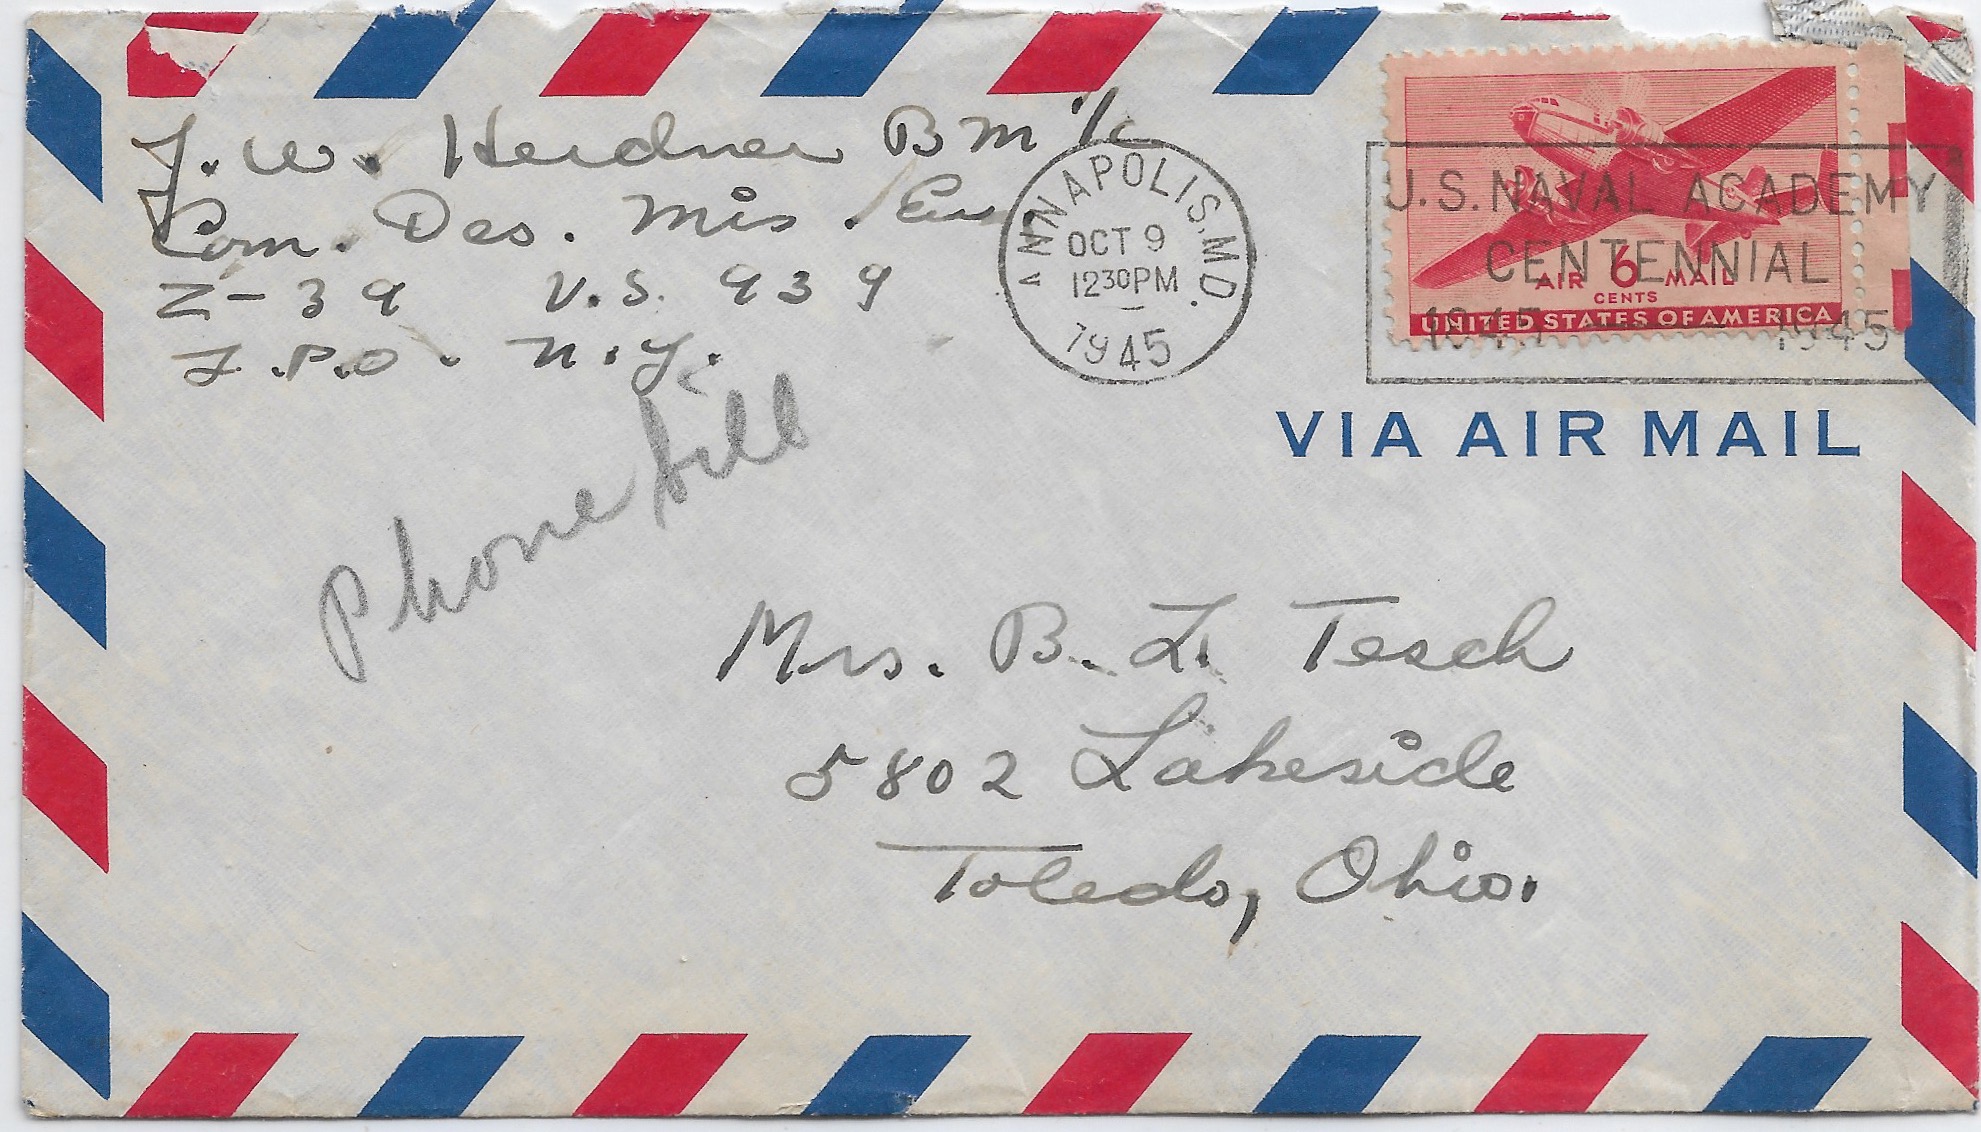 J. W. Heidner BM 1/c
Com. Des. Mis. Eur.
Z-39 U.S. 939
F.P.O. N.Y.
ANNAPOLIS, MD.
OCT 9
1230PM
1945
U.S. NAVAL ACADEMY
CENTENNIAL
1845 1945
AIR 6 MAIL
CENTS
UNITED STATES OF AMERICA
VIA AIR MAIL
Phone bill
Mrs. B. L. Tesch
5802 Lakeside
Toledo, Ohio.